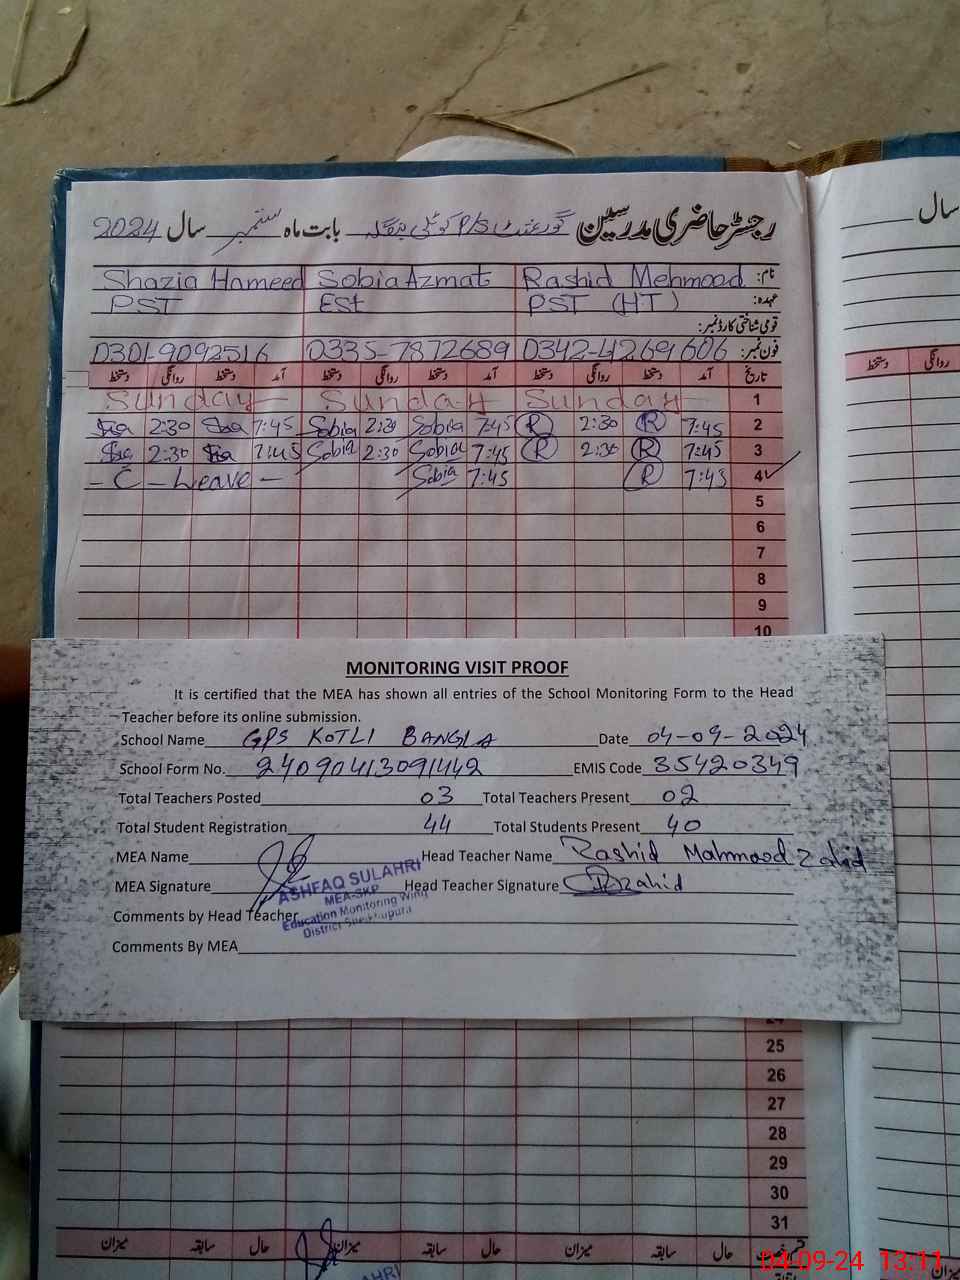 رجسٹر حاضری مدرسین گورنمنٹ P/S کوٹلی بنگلہ بابت ماہ ستمبر سال 2024
سال
نام: Rashid Mehmood Sobia Azmat Shazia Hameed
عہدہ: PST (HT) ESt PST
قومی شناختی کارڈ نمبر:
فون نمبر: 0342-4269606 0335-7872689 0301-9092516
تاریخ آمد دستخط روانگی دستخط آمد دستخط روانگی دستخط آمد دستخط روانگی دستخط
روانگی دستخط
1 Sunday Sunday Sunday
2 7:45 R 2:30 R 7:45 Sobia 2:30 Sobia 7:45 2:30
3 7:45 R 2:30 R 7:45 Sobia 2:30 Sobia 7:45 2:30
4 7:43 R 7:45 Sobia - C - Leave -
5
6
7
8
9
10
MONITORING VISIT PROOF
It is certified that the MEA has shown all entries of the School Monitoring Form to the Head
Teacher before its online submission.
School Name GPS KOTLI BANGLA Date 04-09-2024
School Form No. 24090413091442 EMIS Code 35420349
Total Teachers Posted 03 Total Teachers Present 02
Total Student Registration 44 Total Students Present 40
MEA Name Head Teacher Name Rashid Mahmood Zahid
MEA Signature Head Teacher Signature Rzahid
ASHFAQ SULAHRI
MEA-SKP
Education Monitoring Wing
District Sheikhupura
Comments by Head Teacher
Comments By MEA
24
25
26
27
28
29
30
31
حال سابقہ میزان حال سابقہ میزان حال سابقہ میزان
04-09-24 13:11